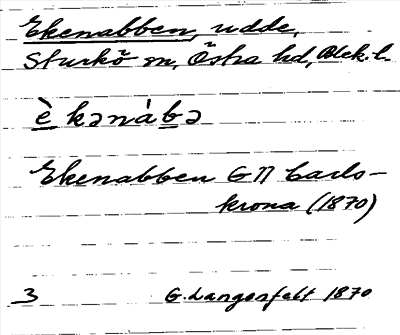 Ekenabben, udde,
Sturkö sn, Östra hd, Blek. l.
è kənàbə
Ekenabben G
Carls-
krona (1870)
3 G. Langenfelt 1870